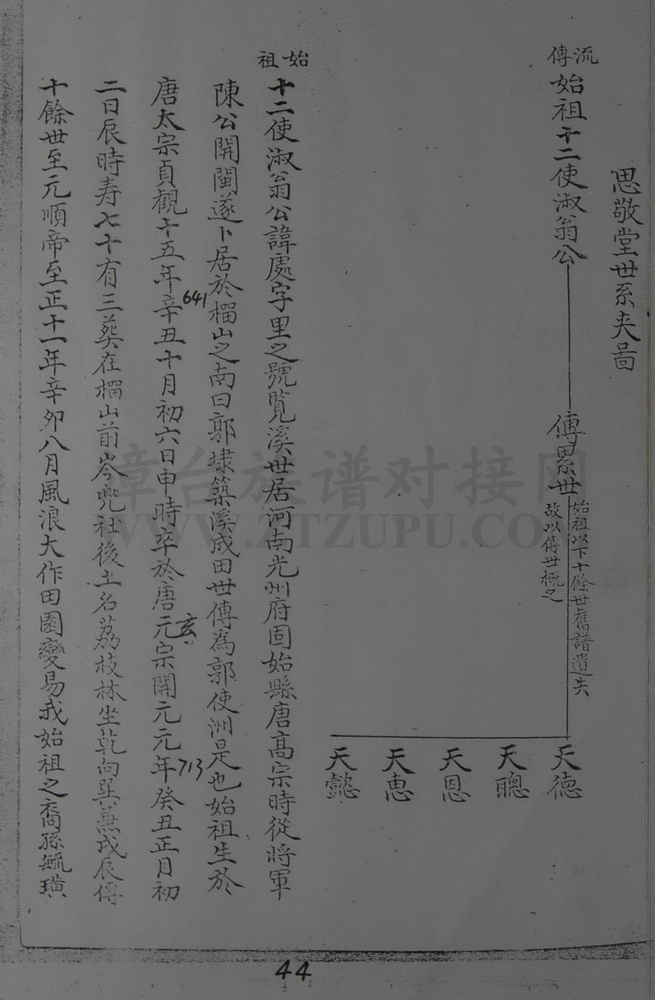 思敬堂世系夹啚
流傳
始祖十二使淑翁公
傳累世
始祖以下十餘世舊譜遺失
故以傳世概之
天德
天聰
天恩
天惠
天懿
始祖
十二使淑翁公諱處字里之號覧溪世居河南光州府固始縣唐高宗時從將軍
陳公開閩遂卜居於榴山之南曰郭埭築溪成田世傳為郭使洲是也始祖生於
唐太宗貞觀十五年辛丑十月初六日申時卒於唐元宗開元元年癸丑正月初
641
玄
713
二日辰時寿七十有三葬在榴山前岑兜社後土名荔枝林坐乾向巽兼戌辰傳
十餘世至元順帝至正十一年辛卯八月風浪大作田園變易我始祖之裔孫毓璜
44
漳台族谱对接网
WWW.ZTZUPU.COM